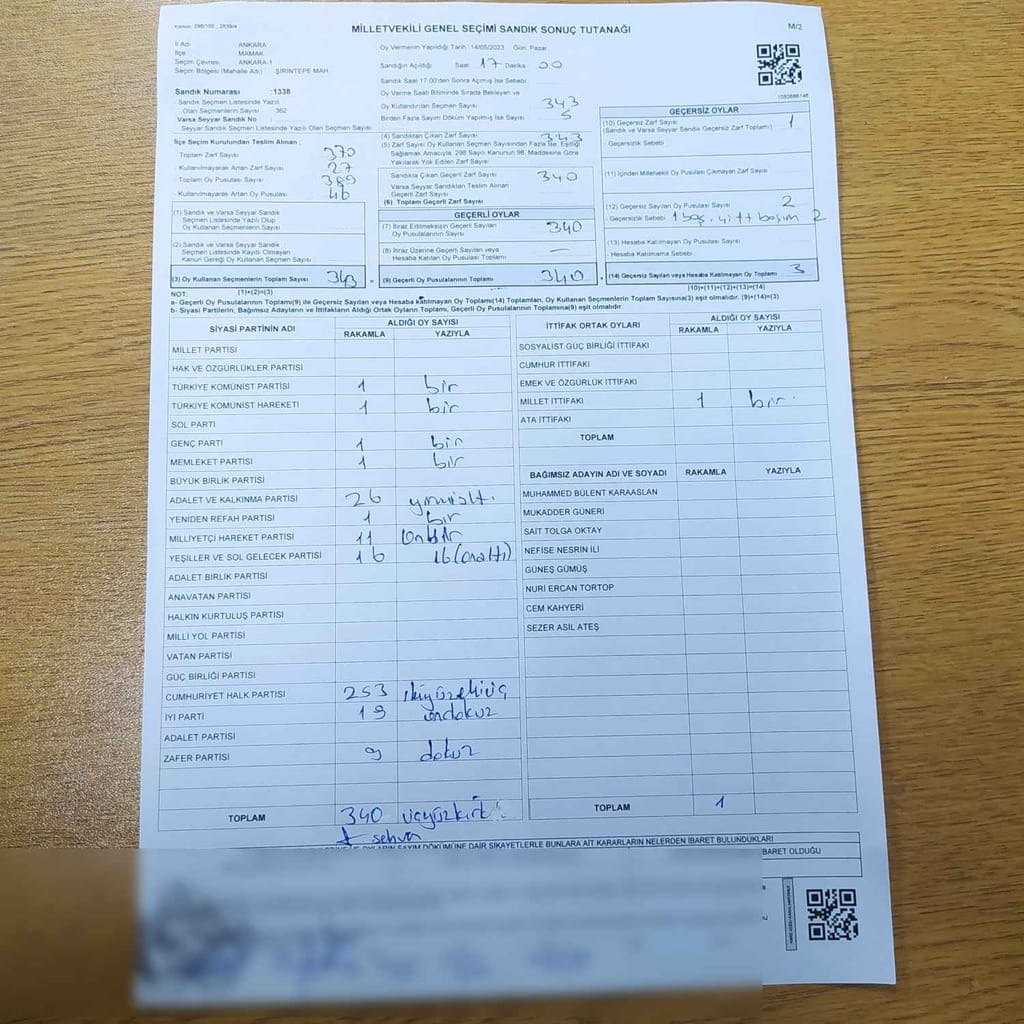 MİLLETVEKİLİ GENEL SEÇİMİ SANDIK SONUÇ TUTANAĞI
M/2
İl Adı ANKARA
İlçe MAMAK
Seçim Çevresi ANKARA-1
Seçim Bölgesi (Mahalle Adı) ŞİRİNTEPE MAH
Sandık Numarası :1338
Sandık Seçmen Listesinde Yazılı
Olan Seçmenlerin Sayısı :362
Varsa Seyyar Sandık No
Seyyar Sandık Seçmen Listesinde Yazılı Olan Seçmen Sayısı
İlçe Seçim Kurulundan Teslim Alınan ;
Toplam Zarf Sayısı 370
Kullanılmayarak Artan Zarf Sayısı 27
Toplam Oy Pusulası Sayısı 389
Kullanılmayarak Artan Oy Pusulası 46
(1) Sandık ve Varsa Seyyar Sandık
Seçmen Listesinde Yazılı Olup
Oy Kullanan Seçmenlerin Sayısı
(2) Sandık ve Varsa Seyyar Sandık
Seçmen Listesinde Kayıtlı Olmayan
Kanun Gereği Oy Kullanan Seçmen Sayısı
(3) Oy Kullanan Seçmenlerin Toplam Sayısı 343
(1)+(2)=(3)
Oy Vermenin Yapıldığı Tarih :14/05/2023 Gün: Pazar
Sandığın Açıldığı Saat: 17 Dakika: 00
Sandık Saat 17:00'den Sonra Açılmış İse Sebebi
Oy Verme Saati Bitiminde Sırada Bekleyen ve
Oy Kullandırılan Seçmen Sayısı 343
Birden Fazla Sayım Döküm Yapılmış İse Sayısı 5
(4) Sandıktan Çıkan Zarf Sayısı 343
(5) Zarf Sayısı Oy Kullanan Seçmen Sayısından Fazla İse, Eşitliği
Sağlamak Amacıyla, 298 Sayılı Kanunun 98. Maddesine Göre
Yakılarak Yok Edilen Zarf Sayısı
Sandıkta Çıkan Geçerli Zarf Sayısı 340
Varsa Seyyar Sandıktan Teslim Alınan
Geçerli Zarf Sayısı
(6) Toplam Geçerli Zarf Sayısı
GEÇERLİ OYLAR
(7) İtiraz Edilmeksizin Geçerli Sayılan
Oy Pusulalarının Sayısı 340
(8) İtiraz Üzerine Geçerli Sayılan veya
Hesaba Katılan Oy Pusulası Toplamı —
(9) Geçerli Oy Pusulalarının Toplamı 340
GEÇERSİZ OYLAR
(10) Geçersiz Zarf Sayısı 1
(Sandık ve Varsa Seyyar Sandık Geçersiz Zarf Toplamı)
Geçersizlik Sebebi
(11) İçinden Milletvekili Oy Pusulası Çıkmayan Zarf Sayısı
(12) Geçersiz Sayılan Oy Pusulası Sayısı 2
Geçersizlik Sebebi
(13) Hesaba Katılmayan Oy Pusulası Sayısı
Hesaba Katılmama Sebebi
(14) Geçersiz Sayılan veya Hesaba Katılmayan Oy Toplamı 3
(10)+(11)+(12)+(13)=(14)
NOT:
a- Geçerli Oy Pusulalarının Toplamı(9) ile Geçersiz Sayılan veya Hesaba katılmayan Oy Toplamı(14) Toplamları, Oy Kullanan Seçmenlerin Toplam Sayısına(3) eşit olmalıdır. (9)+(14)=(3)
b- Siyasi Partilerin, Bağımsız Adayların ve İttifakların Aldığı Ortak Oyların Toplamı, Geçerli Oy Pusulalarının Toplamına(9) eşit olmalıdır.
SİYASİ PARTİNİN ADI ALDIĞI OY SAYISI
RAKAMLA YAZIYLA
MİLLET PARTİSİ
HAK VE ÖZGÜRLÜKLER PARTİSİ
TÜRKİYE KOMÜNİST PARTİSİ 1 bir
TÜRKİYE KOMÜNİST HAREKETİ 1 bir
SOL PARTİ
GENÇ PARTİ 1 bir
MEMLEKET PARTİSİ 1 bir
BÜYÜK BİRLİK PARTİSİ
ADALET VE KALKINMA PARTİSİ 26 yirmialtı
YENİDEN REFAH PARTİSİ 1 bir
MİLLİYETÇİ HAREKET PARTİSİ 11 onbir
YEŞİLLER VE SOL GELECEK PARTİSİ 16 16(onaltı)
ADALET BİRLİK PARTİSİ
ANAVATAN PARTİSİ
HALKIN KURTULUŞ PARTİSİ
MİLLİ YOL PARTİSİ
VATAN PARTİSİ
GÜÇ BİRLİĞİ PARTİSİ
CUMHURİYET HALK PARTİSİ 253 ikiyüzelliüç
İYİ PARTİ 19 ondokuz
ADALET PARTİSİ
ZAFER PARTİSİ 9 dokuz
TOPLAM 340 üçyüzkırk
İTTİFAK ORTAK OYLARI ALDIĞI OY SAYISI
RAKAMLA YAZIYLA
SOSYALİST GÜÇ BİRLİĞİ İTTİFAKI
CUMHUR İTTİFAKI
EMEK VE ÖZGÜRLÜK İTTİFAKI
MİLLET İTTİFAKI 1 bir
ATA İTTİFAKI
TOPLAM
BAĞIMSIZ ADAYIN ADI VE SOYADI RAKAMLA YAZIYLA
MUHAMMED BÜLENT KARAASLAN
MUKADDER GÜNERİ
SAİT TOLGA OKTAY
NEFİSE NESRİN İLİ
GÜNEŞ GÜMÜŞ
NURİ ERCAN TORTOP
CEM KAHYERİ
SEZER ASİL ATEŞ
TOPLAM 1
sehva
OYLARIN SAYIM DÖKÜMÜNE DAİR ŞİKAYETLERLE BUNLARA AİT KARARLARIN NELERDEN İBARET BULUNDUKLARI
BARET OLDUĞU